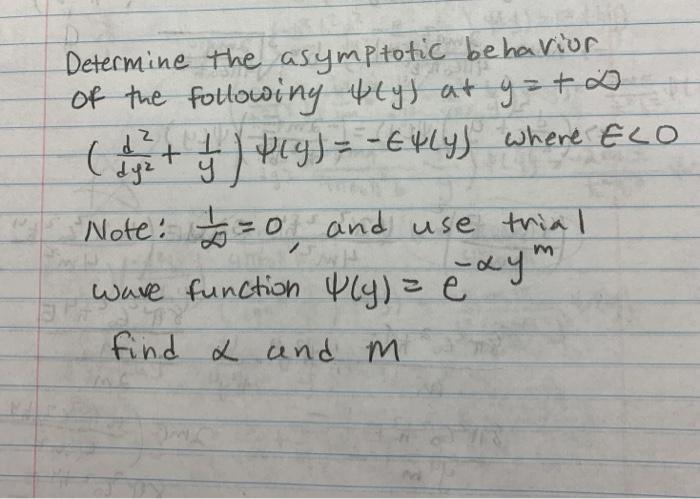 Determine the asymptotic behavior
of the following ψ(y) at y = + ∞
( d²/dy² + 1/y ) ψ(y) = -ϵψ(y) where ϵ<0
Note: 1/∞ = 0, and use trial
wave function ψ(y) = e^{-αy^m}
find α and m